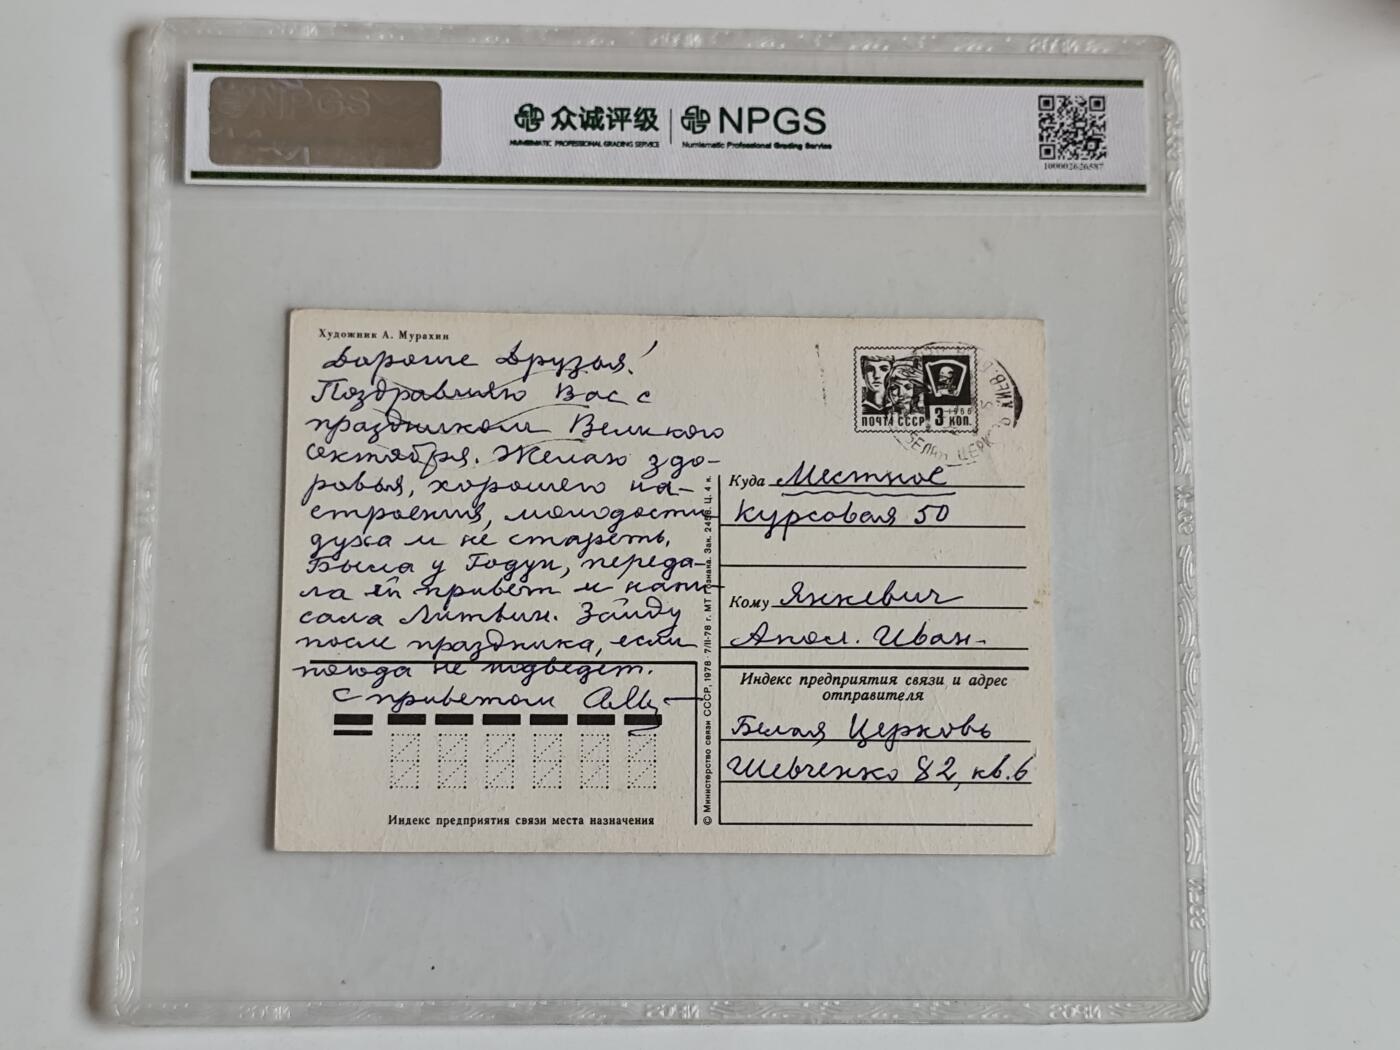 众诚评级
NUMISMATIC PROFESSIONAL GRADING SERVICE
NPGS
Numismatic Professional Grading Service
100002626587
NPGS
Художник А. Мурахин
Дорогие Друзья!
Поздравляю Вас с
праздником Великого
октября. Желаю здо-
ровья, хорошего на-
строения, молодости
духа и не стареть.
Была у Годун, переда-
ла ей привет и напи-
сала Литвин. Зайду
после праздника, если
погода не подведет.
С приветом
ПОЧТА СССР
1966
3 КОП.
БЕЛАЯ ЦЕРК
КИЕВ.
Куда Местное
Курсовая 50
Кому Янкевич
Апол. Иван-
Индекс предприятия связи и адрес
отправителя
Белая Церковь
Шевченко 82, кв. 6
Индекс предприятия связи места назначения
© Министерство связи СССР, 1978 · 7/II-78 г. МТ Гознака. Зак. Ц. 4 к.